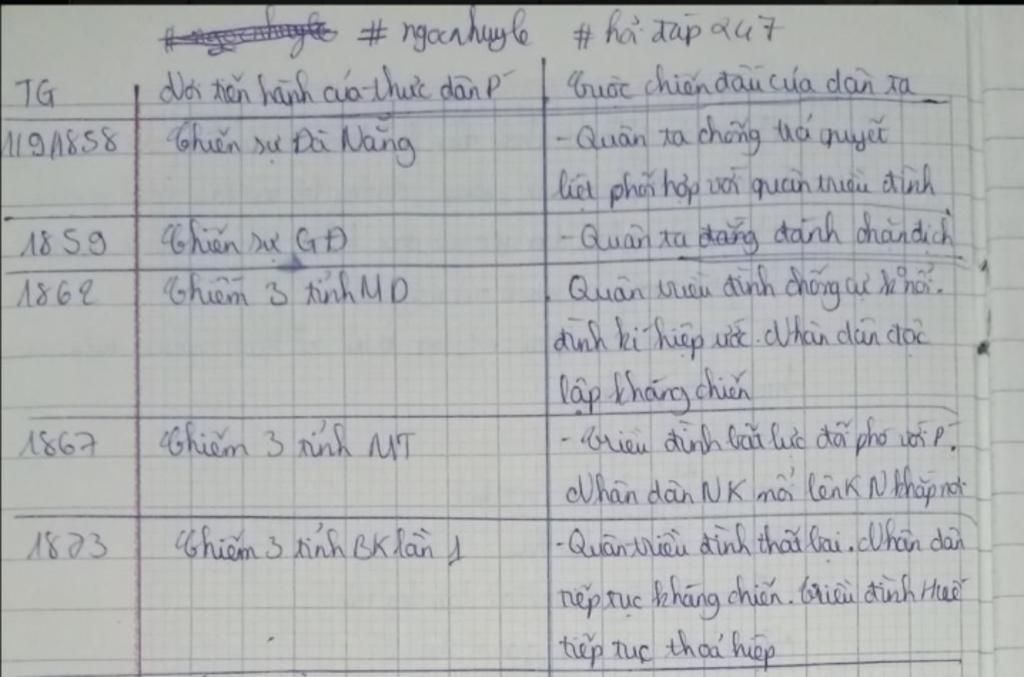 # ngocnhuyle # hỏi đáp 247
TG Nơi tiến hành của thực dân P Cuộc chiến đấu của dân ta
1/9/1858 Chiến sự Đà Nẵng - Quân ta chống trả quyết
liệt phối hợp với quân triều đình
1859 Chiến sự GĐ - Quân ta đang đánh chặn địch
1862 Chiếm 3 tỉnh MĐ Quân triều đình chống cự k nổi.
đình kí hiệp ước. Nhân dân độc
lập kháng chiến
1867 Chiếm 3 tỉnh MT - Triều đình bất lực đối phó với P.
Nhân dân NK nổi lên KN khắp nơi
1873 Chiếm 3 tỉnh BK lần 1 - Quân triều đình thất bại. Nhân dân
tiếp tục kháng chiến. triều đình Huế
tiếp tục thoả hiệp